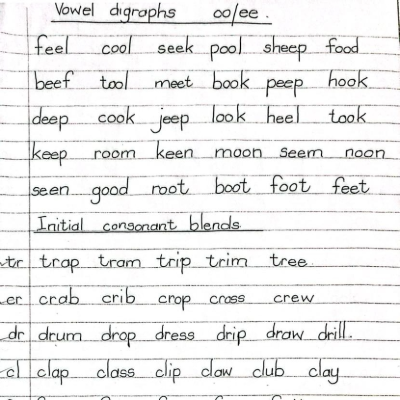 Vowel digraphs oo/ee.
feel cool seek pool sheep food
beef tool meet book peep hook
deep cook jeep look heel took
keep room keen moon seem noon
seen good root boot foot feet
Initial consonant blends
tr trap tram trip trim tree
cr crab crib crop cross crew
dr drum drop dress drip draw drill.
cl clap class clip claw club clay